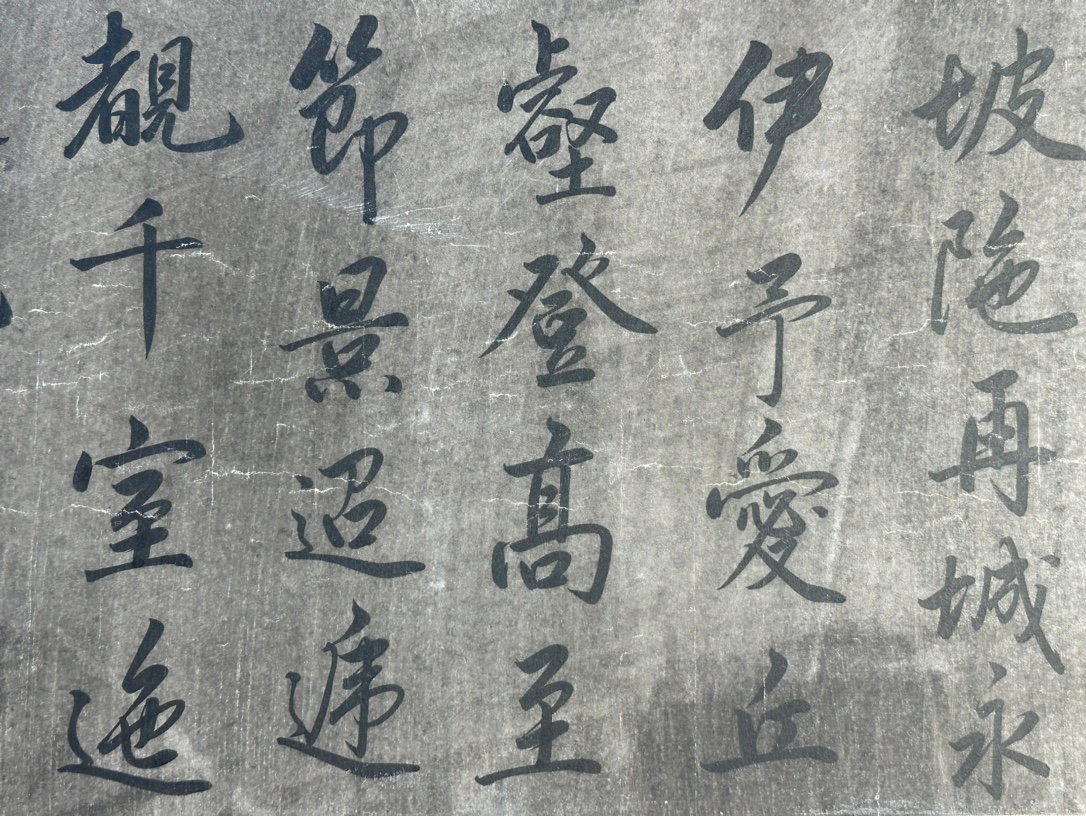 坡陁再城永
伊予愛丘
壑登高至
節景迢遞
覩千室迤